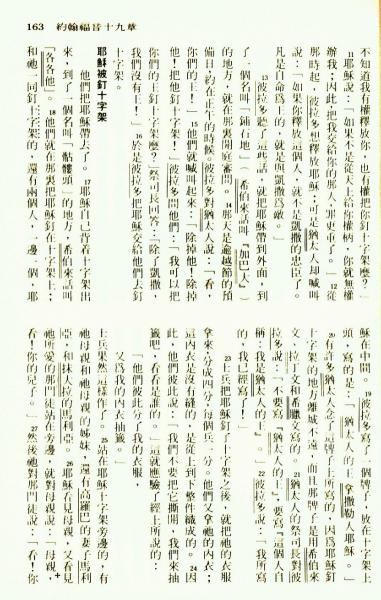 163 約翰福音十九章
不知道我有權釋放你，也有權把你釘十字架麼？」
11耶穌說：「如果不是從天上給你權柄，你就無權
辦我；因此，把我交給你的那人，罪更重了。」12從
那時起，彼拉多想釋放耶穌；可是猶太人却喊叫
說：「如果你釋放這個人，就不是凱撒的忠臣了。
凡是自命爲王的，就是與凱撒爲敵。」
13彼拉多聽了這些話，就把耶穌帶到外面，到
了一個名叫「鋪石地」（希伯來話叫『加巴大』）
的地方，就在那裏開庭審問。14那天是逾越節的預
備日，約在正午的時候。彼拉多對猶太人說：「看，
你們的王！」15他們就喊叫起來：「除掉他！除掉
他！把他釘十字架！」彼拉多問他們：「我可以把
你們的王釘十字架麼？」祭司長回答：「除了凱撒，
我們沒有王！」16於是彼拉多把耶穌交給他們去釘
十字架。
耶穌被釘十字架
他們把耶穌帶去了。17耶穌自己背着十字架出
來，到了一個名叫「骷髏頭」的地方，希伯來話叫
「各各他」。18他們就在那裏把耶穌釘在十字架上；
和祂一同釘十字架的，還有兩個人，一邊一個，耶
穌在中間。19彼拉多寫了一個牌子，放在十字架上
頭，寫的是：「猶太人的王，拿撒勒人耶穌。」
20有許多猶太人念了這牌子上所寫的，因爲耶穌釘
十字架的地方離城不遠，而且那牌子是用希伯來
文、拉丁文和希臘文寫的。21猶太人的祭司長對彼
拉多說：「不要寫『猶太人的王』，要寫『這個人自
稱：我是猶太人的王』。」22彼拉多說：「我所寫
的，我已經寫了！」
23士兵把耶穌釘了十字架之後，就把祂的衣服
拿來，分成四分，每個兵一分。他們又拿祂的內衣；
這內衣是沒有縫的，是從上到下整件織成的。24因
此，他們彼此說：「我們不要把它撕開，我們來抽
籤吧，看看是誰的。」這就應驗了經上所說的：
「他們彼此分了我的衣服，
又爲我的內衣抽籤。」
士兵果然這樣作了。25站在耶穌十字架旁邊的，有
祂母親和祂母親的姊妹，還有高羅巴的妻子馬利
亞，和抹大拉的馬利亞。26耶穌看見母親，又看見
祂所愛的那門徒站在旁邊，就對母親說：「母親，
看！你的兒子。」27然後祂對那門徒說：「看！你